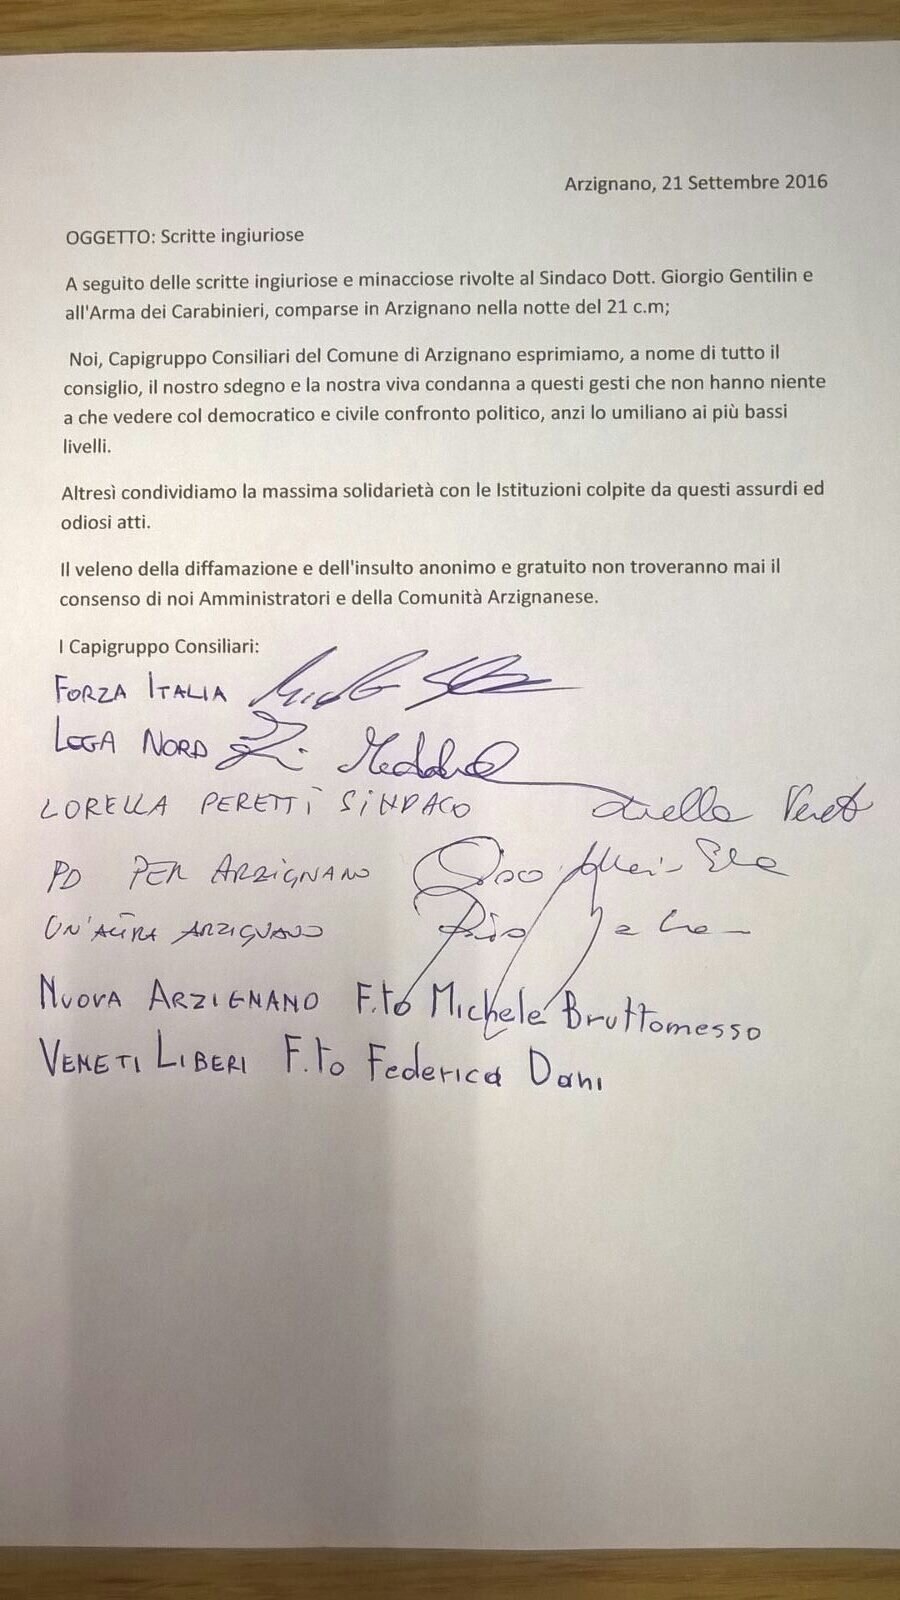 Arzignano, 21 Settembre 2016
OGGETTO: Scritte ingiuriose
A seguito delle scritte ingiuriose e minacciose rivolte al Sindaco Dott. Giorgio Gentilin e
all'Arma dei Carabinieri, comparse in Arzignano nella notte del 21 c.m;
Noi, Capigruppo Consiliari del Comune di Arzignano esprimiamo, a nome di tutto il
consiglio, il nostro sdegno e la nostra viva condanna a questi gesti che non hanno niente
a che vedere col democratico e civile confronto politico, anzi lo umiliano ai più bassi
livelli.
Altresì condividiamo la massima solidarietà con le Istituzioni colpite da questi assurdi ed
odiosi atti.
Il veleno della diffamazione e dell'insulto anonimo e gratuito non troveranno mai il
consenso di noi Amministratori e della Comunità Arzignanese.
I Capigruppo Consiliari:
FORZA ITALIA
LEGA NORD
LORELLA PERETTI SINDACO
PD PER ARZIGNANO
UN'ALTRA ARZIGNANO
NUOVA ARZIGNANO F.to Michele Bruttomesso
VENETI LIBERI F.to Federica Dani